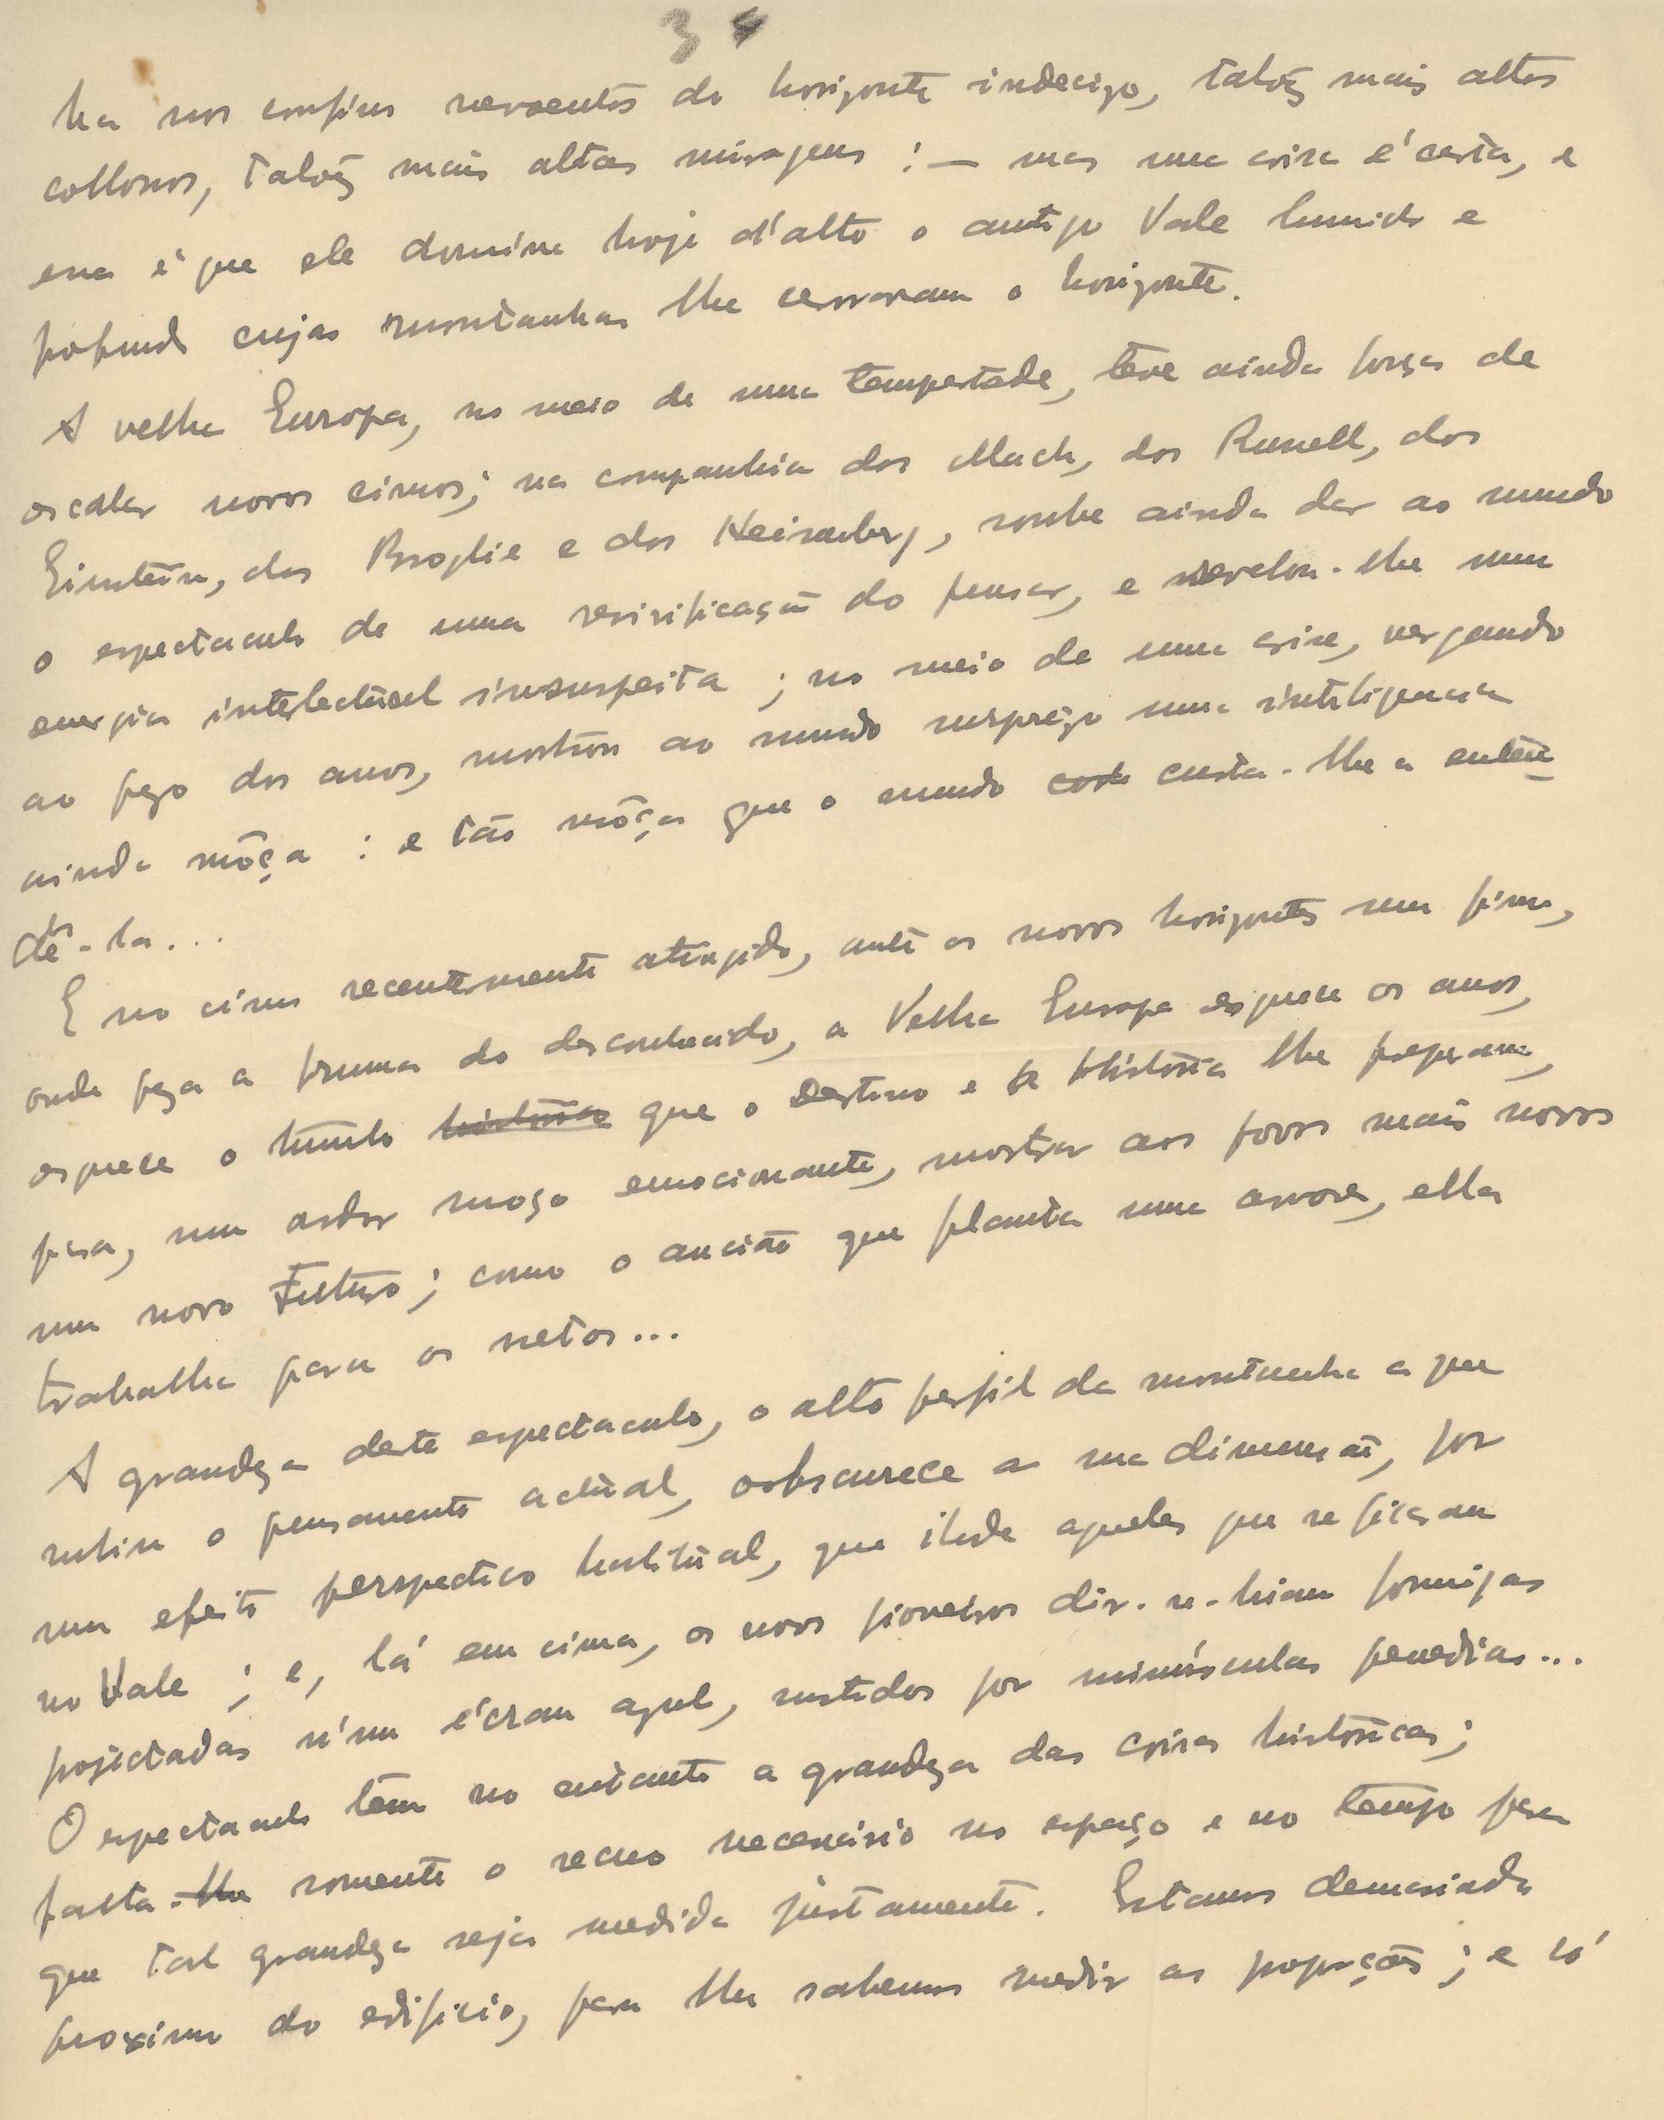 3
ha nos confins nevoentos do horizonte indeciso, talvez mais altos
collossos, talvez mais altas miragens : — mas uma coisa é certa, e
essa é que ele domina hoje d'alto o antigo Vale humido e
profundo cujas montanhas lhe cerravam o horizonte.
A velha Europa, no meio de uma tempestade, teve ainda força de
escalar novos cimos; na companhia dos Mach, dos Russell, dos
Einstein, dos Broglie e dos Heisenberg, soube ainda dar ao mundo
o espectaculo de uma revivificação do pensar, e revelou-lhe uma
energia intelectual insuspeita ; no meio de uma crise, vergando
ao pezo dos anos, mostrou ao mundo surprezo uma inteligencia
ainda môça : e tão môça que o mundo custa-lhe a enten-
dê-la...
E no cimo recentemente atingido, ante os novos horizontes sem fim,
onde peza a bruma do desconhecido, a Velha Europa esquece os anos,
esquece o tumulo historico que o Destino e a Historia lhe preparam,
para, num ardor moço emocionante, mostrar aos povos mais novos
um novo Futuro; como o ancião que planta uma arvore, ella
trabalha para os netos...
A grandeza deste espectaculo, o alto perfil da montanha a que
subiu o pensamento actual, obscurece a sua dimensão, por
um efeito perspectico habitual, que ilude aqueles que se ficaram
no Vale ; e, lá em cima, os novos pioneiros dir-se-hiam formigas
projectadas n'um écran azul, sustidos por minúsculas penedias...
O espectaculo tem no entanto a grandeza das coisas históricas;
falta-lhe somente o recuo necessário no espaço e no tempo para
que tal grandeza seja medida justamente. Estamos demasiado
proximo do edificio, para lhe sabermos medir as proporções; e só